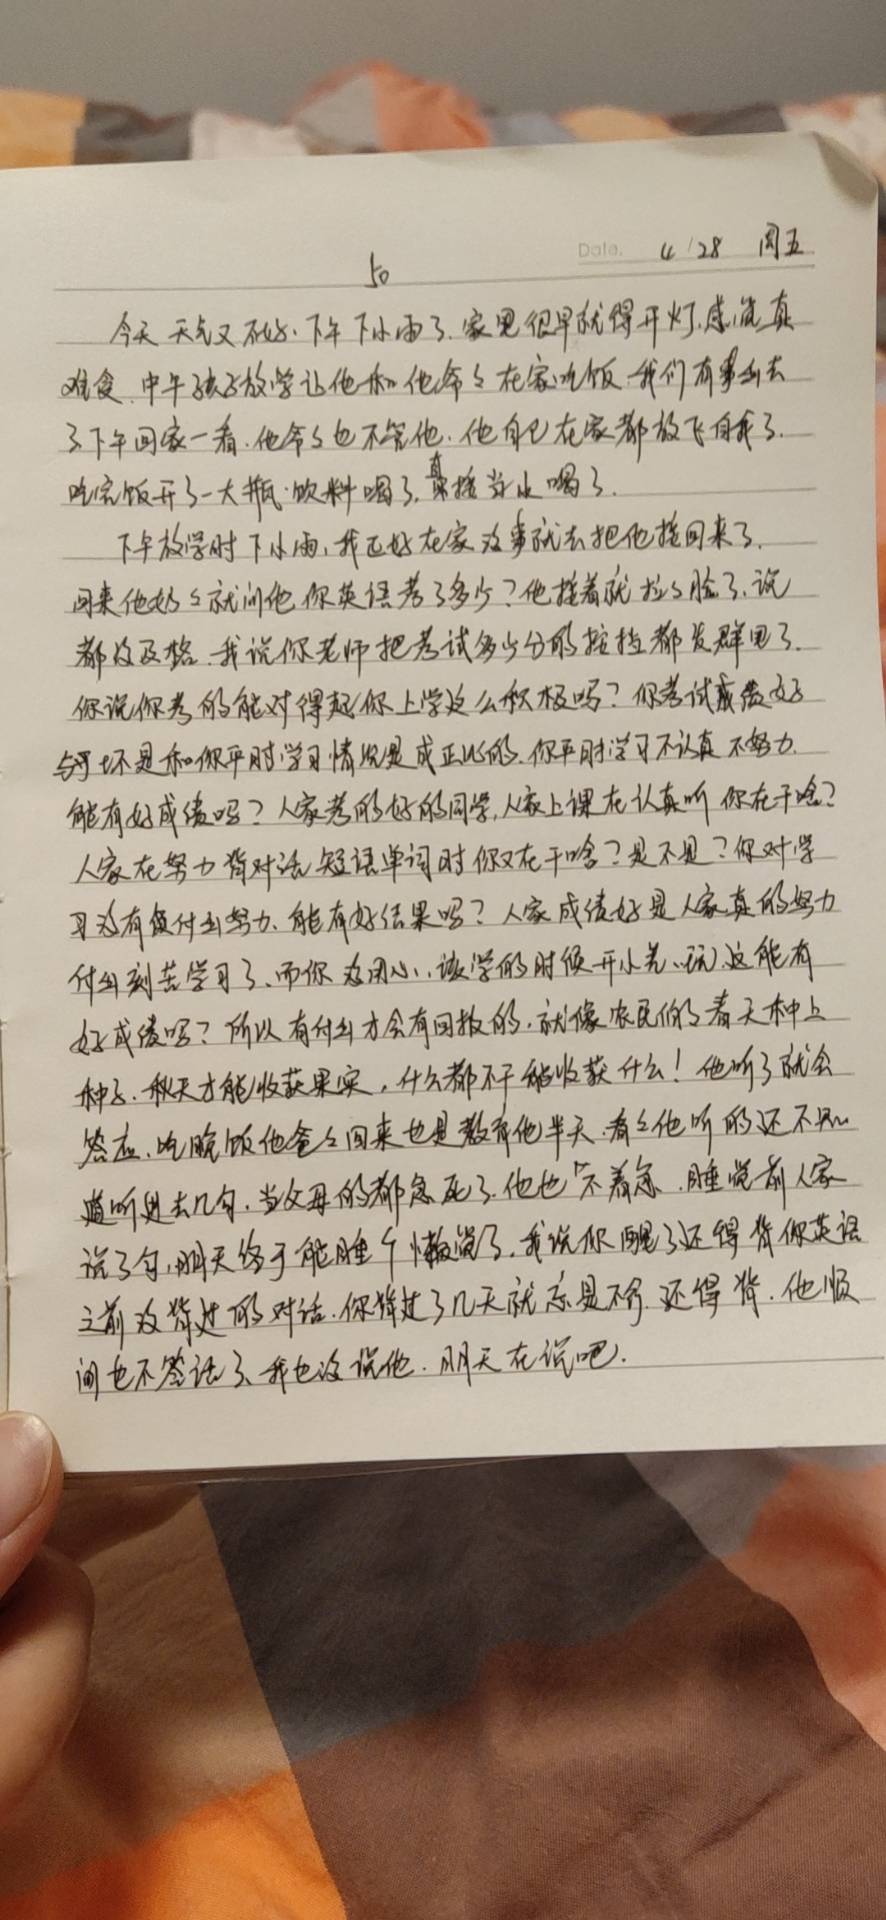 Date. 4/28 周五
50
今天天气又不好.下午下小雨了.家里很早就得开灯.感觉真
难受.中午孩子放学让他和他爷々在家吃饭.我们有事出去
了下午回家一看.他爷々也不管他.他自己在家都放飞自我了.
吃完饭开了一大瓶饮料喝了,直接当水喝了.
下午放学时下小雨,我正好在家没事就去把他接回来了.
回来他奶々就问他你英语考了多少?他接着就拉々脸了、说
都没及格.我说你老师把考试多少分的按档都发群里了.
你说你考的能对得起你上学这么积极吗?你考试成绩好
与坏是和你平时学习情况是成正比的.你平时学习不认真不努力.
能有好成绩吗?人家考的好的同学,人家上课在认真听你在干啥?
人家在努力背对话短语单词时你又在干啥?是不是?你对学
习没有付出努力、能有好结果吗?人家成绩好是人家真的努力
付出刻苦学习了、而你没用心、该学的时候开小差、玩、这能有
好成绩吗?所以有付出才会有回报的.就像农民伯々春天种上
种子.秋天才能收获果实,什么都不干能收获什么!他听了就会
答应、吃晚饭他爸々回来也是教育他半天、看々他听的还不知
道听进去几句.当父母的都急死了.他也不着急.睡觉前人家
说了句,明天终于能睡个懒觉了.我说你醒了还得背你英语
之前没背过的对话.你背过了几天就忘是不行.还得背.他顺
间也不答话了、我也没说他.明天在说吧.